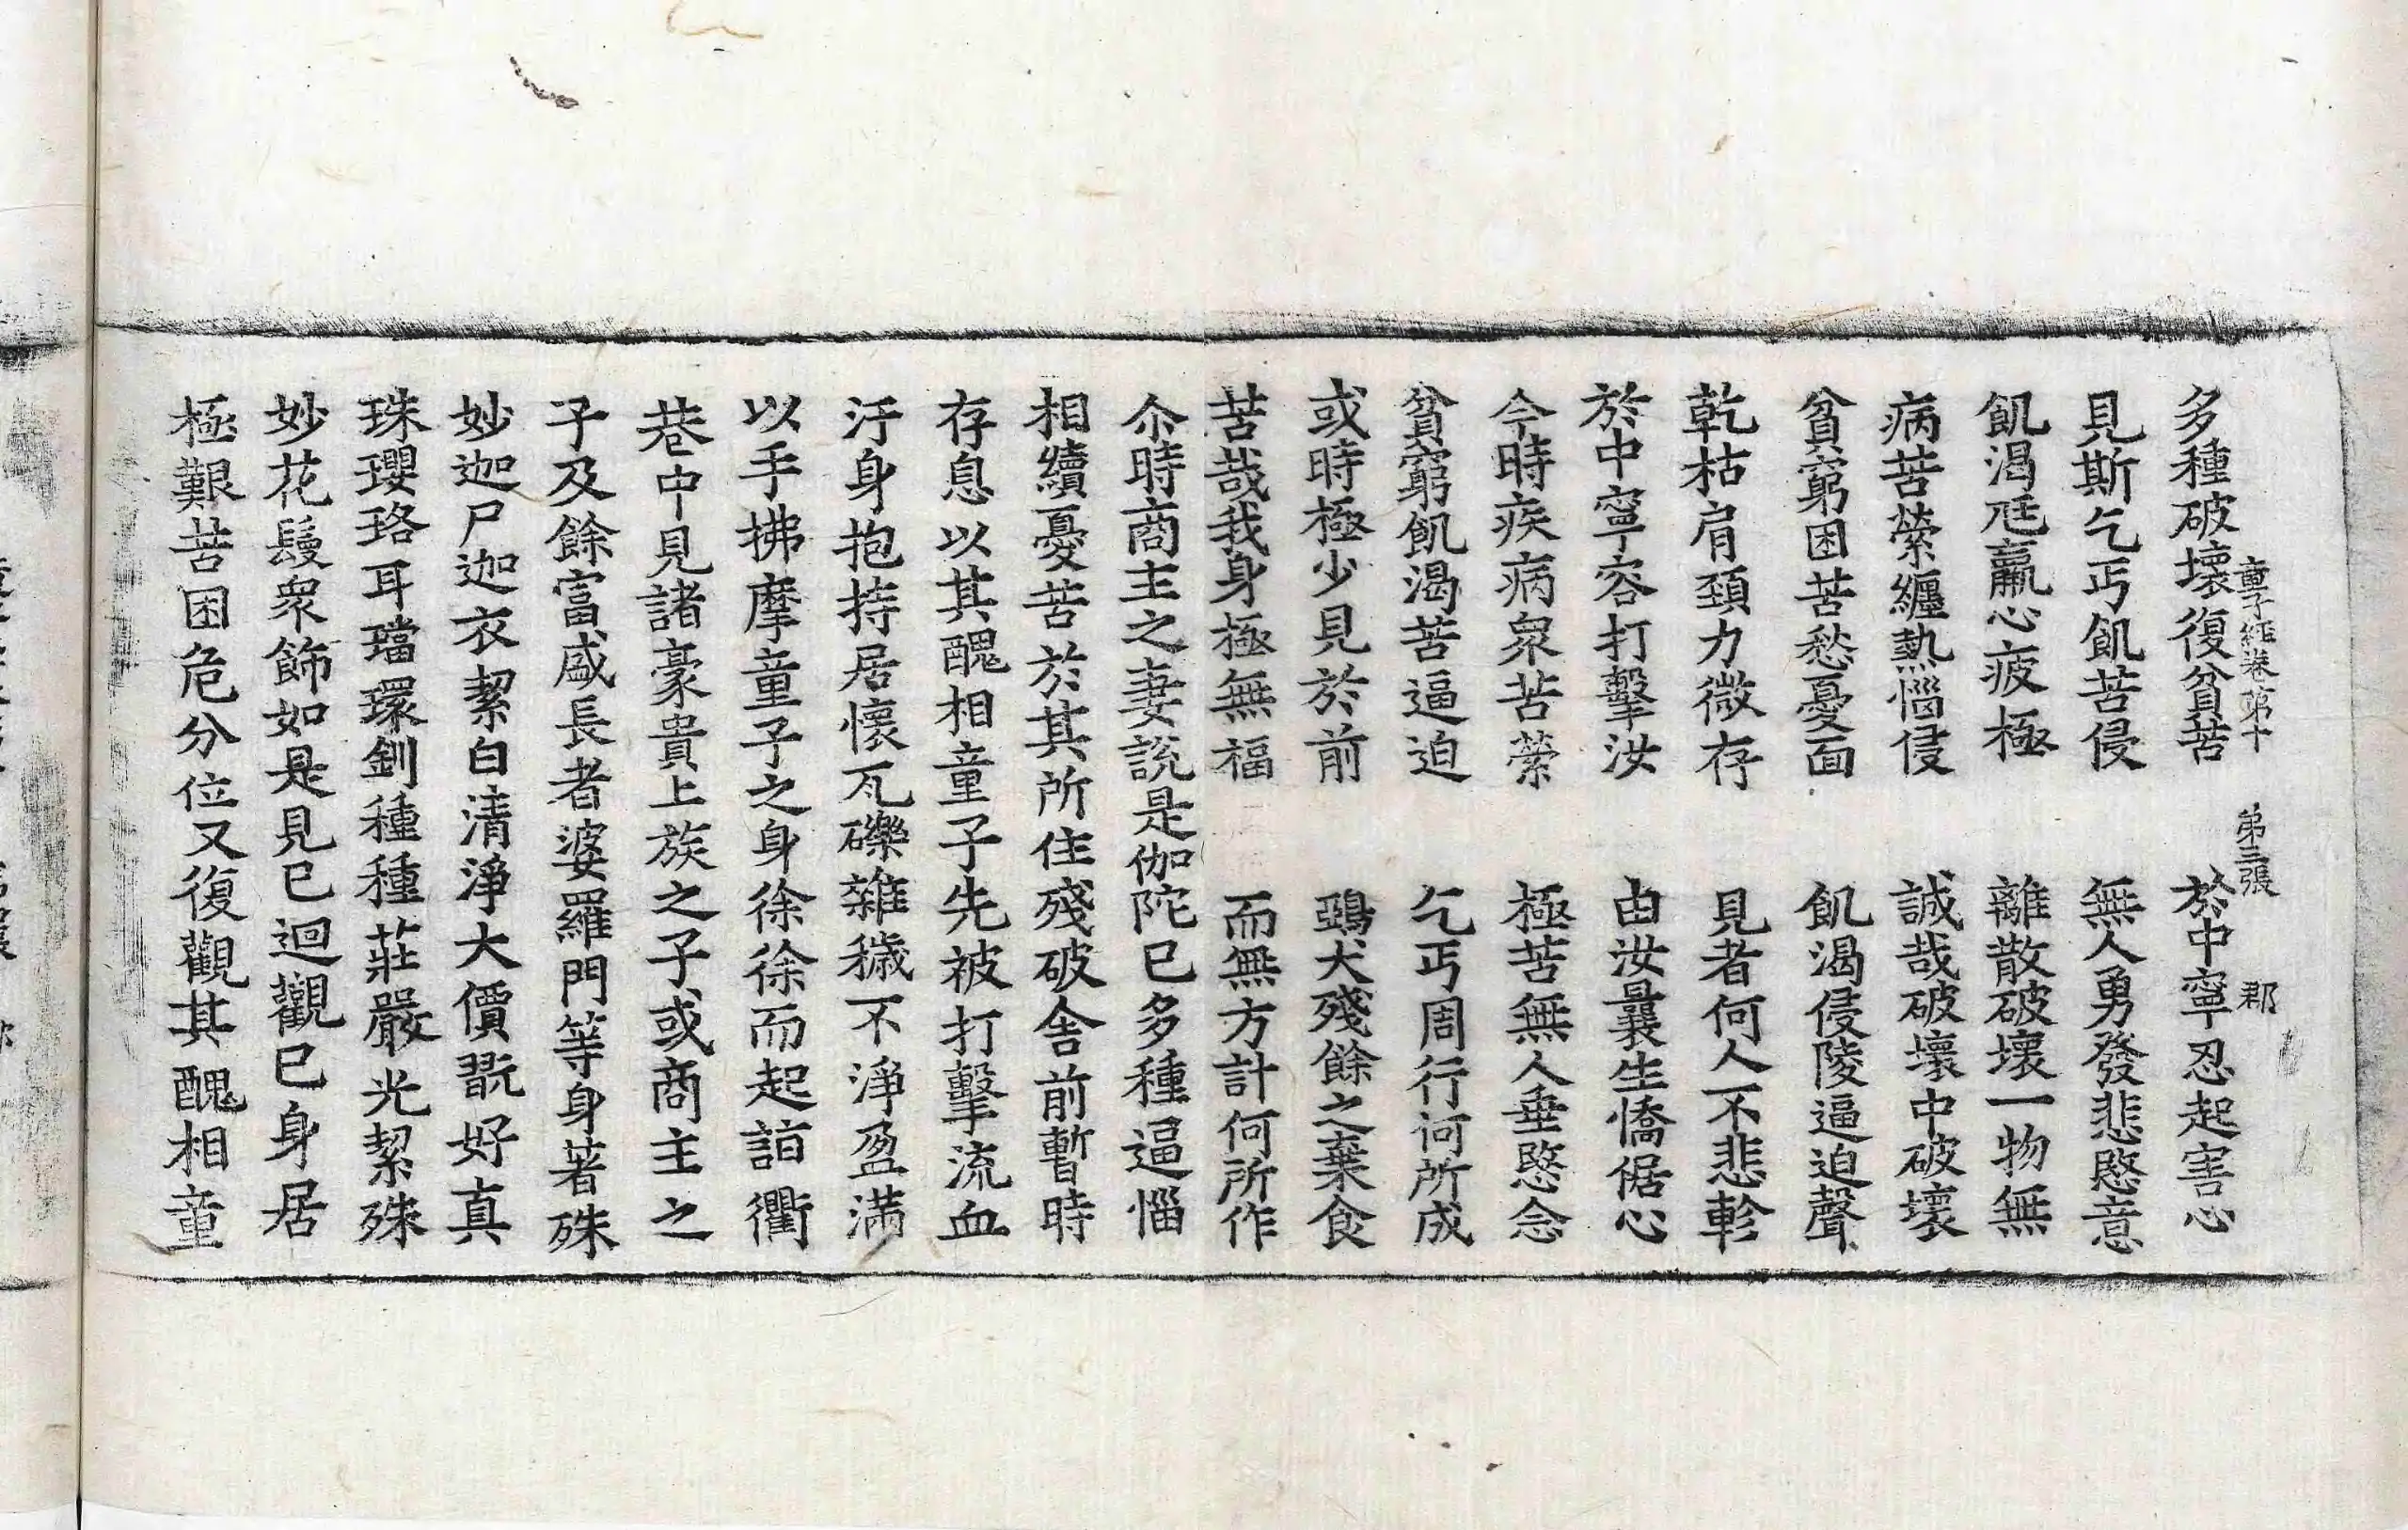 童子經卷第十 第三張 郡
多種破壞復貧苦 於中寧忍起害心
見斯乞丐飢苦侵 無人勇發悲愍意
飢渴尫羸心疲極 離散破壞一物無
病苦縈纏熱惱侵 誠哉破壞中破壞
貧窮困苦愁憂面 飢渴侵陵逼迫聲
乾枯肩頸力微存 見者何人不悲軫
於中寧容打擊汝 由汝曩生憍倨心
今時疾病衆苦縈 極苦無人垂愍念
貧窮飢渴苦逼迫 乞丐周行何所成
或時極少見於前 鵶犬殘餘之棄食
苦哉我身極無福 而無方計何所作
尒時商主之妻說是伽陀已多種逼惱
相續憂苦於其所住殘破舍前暫時
存息以其醜相童子先被打擊流血
汙身抱持居懷瓦礫雜穢不淨盈滿
以手拂摩童子之身徐徐而起詣衢
巷中見諸豪貴上族之子或商主之
子及餘富盛長者婆羅門等身著殊
妙迦尸迦衣絜白清淨大價翫好真
珠瓔珞耳璫環釧種種莊嚴光絜殊
妙花鬘衆飾如是見已迴觀已身居
極艱苦困危分位又復觀其醜相童